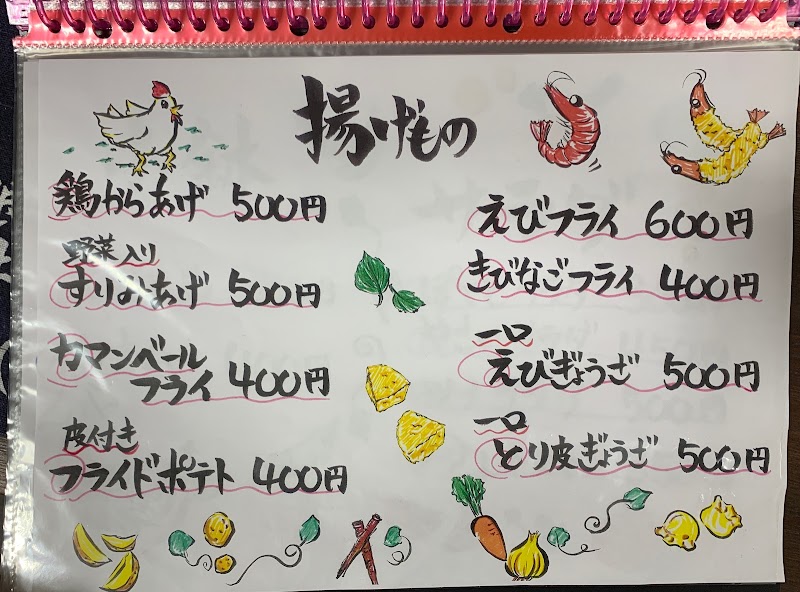 揚げもの
鶏からあげ 500円
野菜入り
すりみあげ 500円
カマンベール
フライ 400円
皮付き
フライドポテト 400円
えびフライ 600円
きびなごフライ 400円
一口
えびぎょうざ 500円
一口
とり皮ぎょうざ 500円